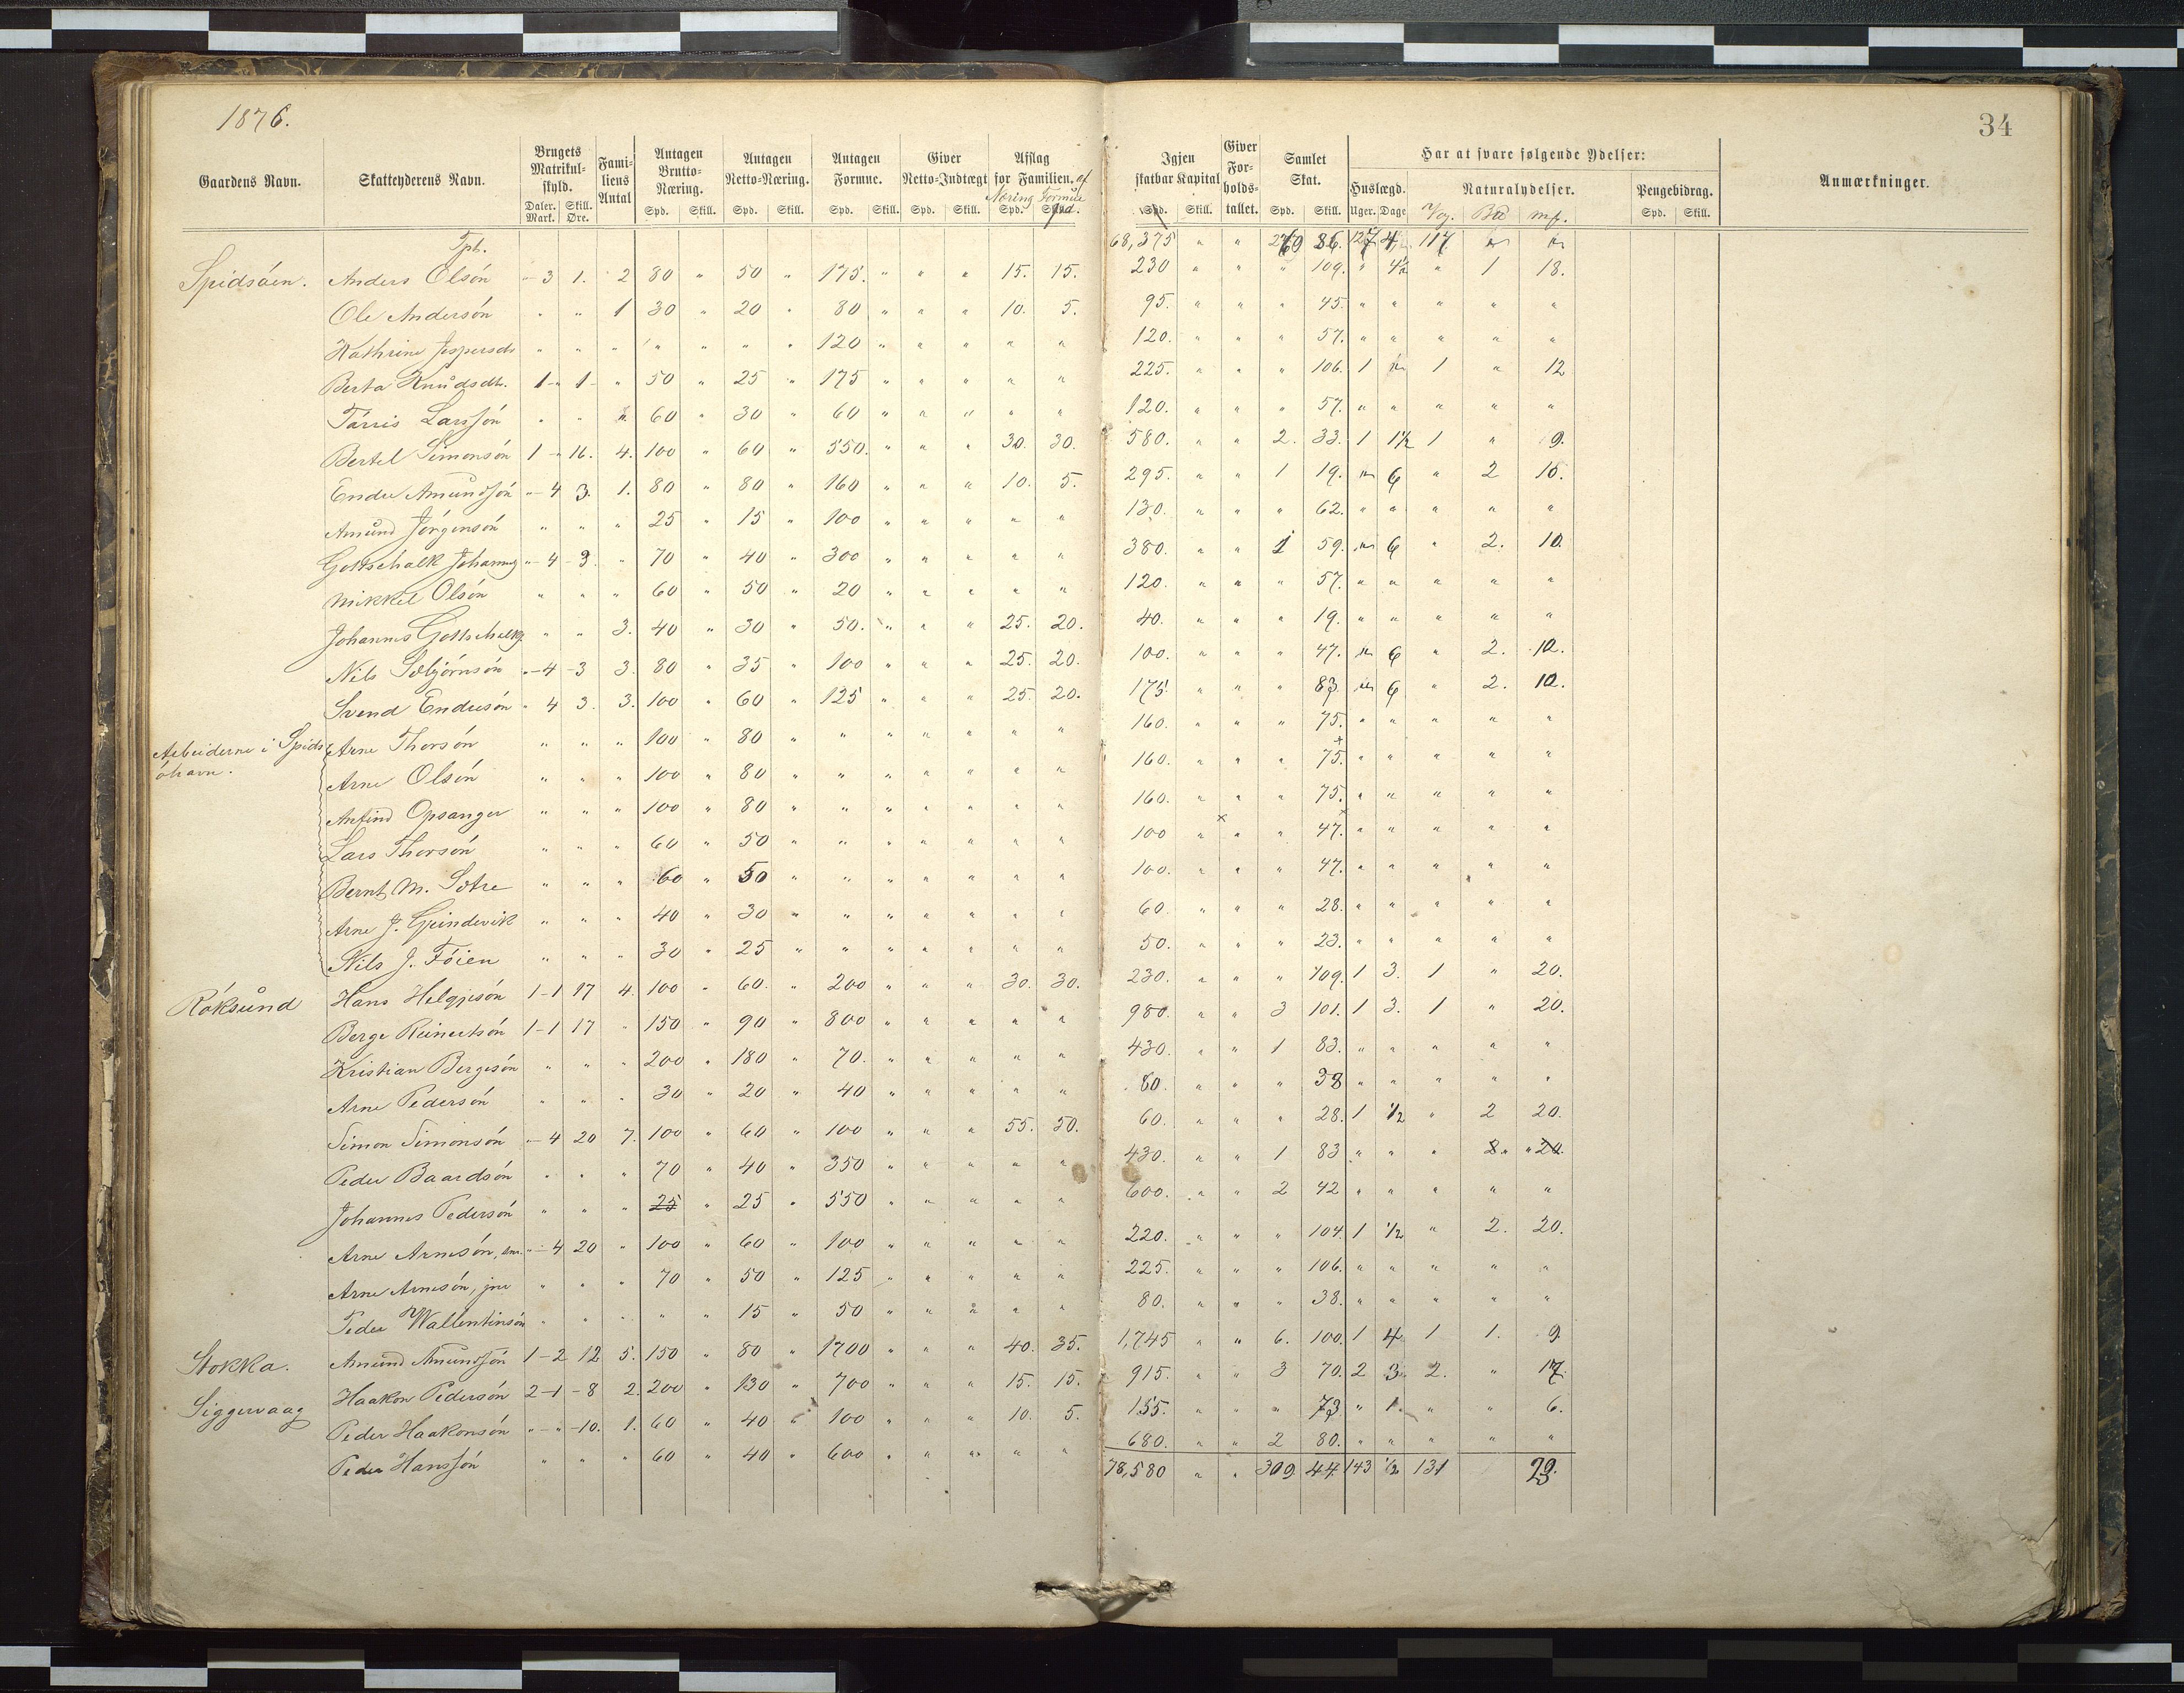 1876.
34
Gaardens Navn. Skatteyderens Navn. Brugets Matrikul-skyld. Daler. Mark. Skill. Øre. Fami-liens Antal Antagen Brutto-Næring. Spd. Skill. Antagen Netto-Næring. Spd. Skill. Antagen Formue. Spd. Skill. Giver Netto-Indtægt Spd. Skill. Afslag for Familien. af Næring Formue Spd. Spd. Igjen skatbar Kapital Spd. Skill. Giver For-holds-tallet. Samlet Skat. Spd. Skill. Har at svare følgende Ydelser: Huslægd. Uger. Dage Naturalydelser. Pengebidrag. Spd. Skill. Anmærkninger.
Tpt. 68,375 " " 117
Spidsöen. Anders Olsón " - 3 1. 2 80 " 50 " 175. " " " 15. 15. 230 " " " 109. " 4½ " 1 18.
Ole Andersón " " 1 30 " 20 " 80 " " " 10. 5. 95. " " " 45. " " " " "
Kathrine Jespersdt " " " " " " " 120 " " " " " 120. " " " 57. " " " " "
Berta Knudsdtr. 1 - " 1 - " 50 " 25 " 175 " " " " " 225. " " " 106. 1 " 1 " 12
Tárris Larssón " " " 60 " 30 " 60 " " " " " 120. " " " 57. " " " " "
Bertel Simonsón 1 - " 16. 4. 100 " 60 " 550. " " " 30. 30. 580. " " 2. 33. 1 1½ 1 " 9.
Endre Amundsón " - 4 3. 1. 80 " 80 " 160 " " " 10. 5. 295. " " 1 19. " 6 " 2 10.
Amund Jörgensón " " " 25 " 15 " 100 " " " " " 130. " " " 62. " " " " "
Gottschalk Johannes " - 4 - 3. " 70 " 40 " 300 " " " " " 380. " " 1 59. " 6 " 2. 10.
Mikkel Olsón " " " 60 " 50 " 20 " " " " " 120. " " " 57. " " " " "
Johannes Gottschalks " " 3. 40 " 30 " 50. " " " 25. 20. 40. " " " 19. " " " " "
Nils Sæbjörnsón " - 4 - 3 3. 80 " 35 " 100 " " " 25. 20. 100. " " " 47. " 6 " 2. 10.
Svend Endresón " 4 3. 3. 100 " 60 " 125 " " " 25. 20. 175. " " " 83. " 6 " 2. 10.
Arbeiderne i Spids öhavn. Arne Thorsón " " " 100 " 80 " " " " " " " 160. " " " 75. " " " " "
Arne Olsón " " " 100 " 80 " " " " " " " 160. " " " 75. " " " " "
Anfind Opsanger " " " 100 " 80 " " " " " " " 160. " " " 75. " " " " "
Lars Thorsón " " " 60 " 50 " " " " " " " 100 " " " 47. " " " " "
Bernt M. Sotre " " " 60 " 50 " " " " " " " 100. " " " 47. " " " " "
Arne J. Grindevik " " " 40 " 30 " " " " " " " 60. " " " 28. " " " " "
Nils J. Föien " " " 30 " 25 " " " " " " " 50. " " " 23. " " " " "
Röksund Hans Helgesón 1 - 1 17 4. 100 " 60. " 200 " " " 30. 30. 230. " " " 109. 1 3. 1 " 20.
Berge Reinertsón 1 - 1 17 " 150 " 90 " 800 " " " " " 980. " " 3 101. 1 3. 1 " 20.
Kristian Bergesón " " " 200 " 180 " 70. " " " " " 430. " " 1 83. " " " " "
Arne Pedersón " " " 30 " 20 " 40 " " " " " 80. " " " 38 " " " " "
Simon Simonsón " - 4 20 7. 100 " 60 " 100 " " " 55. 50. 60. " " " 28. 1 ½ " 2 20.
Peder Baardsón " " " 70 " 40 " 350 " " " " " 430. " " 1 83 " " " 2. " 20.
Johannes Pedersón " " " 25 " 25 " 550 " " " " " 600. " " 2 42 " " " " "
Arne Arnesón, snr. " - 4 20 " 100 " 60 " 100 " " " " " 220. " " " 104. 1 ½ " 2. 20.
Arne Arnesón, jnr " " " 70 " 50 " 125 " " " " " 225. " " " 106. " " " " "
Peder Wallentinsón " " " " " 15 " 50 " " " " " 80. " " " 38. " " " " "
Stokka. Amund Amundsón 1 - 2 12 5. 150 " 80 " 1700 " " " 40. 35. 1,745 " " 6. 100. 1 4 1 1. 9
Siggervaag Haakon Pedersón 2 - 1 - 8 2. 200 " 130 " 700 " " " 15. 15. 915. " " 3 70. 2 3. 2. " 17.
Peder Haakonsón " - " - 10. 1. 60 " 40 " 100 " " " 10. 5. 155. " " " 73 " 1. " " 6.
Peder Hanssón " " " 60 " 40 " 600 " " " " " 680. " " 2 80. " " " " "
78,580 " " 309 44 143 ½ 131